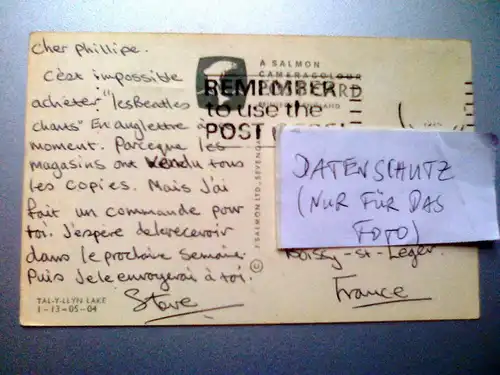 Cher Phillipe.
C'est impossible
achéter "les Beatles
chants" En anglettre à
moment. Parceque les
magasins ont vendu tous
les copies. Mais J'ai
fait un commande pour
toi. J'espére de le recevoir
dans le prochaine semaine.
Puis Je le envoyerai à toi.
Steve
TAL-Y-LLYN LAKE
1-13-05-04
A SALMON
CAMERACOLOUR
POST CARD
REMEMBER
to use the
POST
J SALMON LTD., SEVENOA
©
DATENSCHUTZ
(NUR FÜR DAS
FOTO)
Boissy-st-Léger.
France